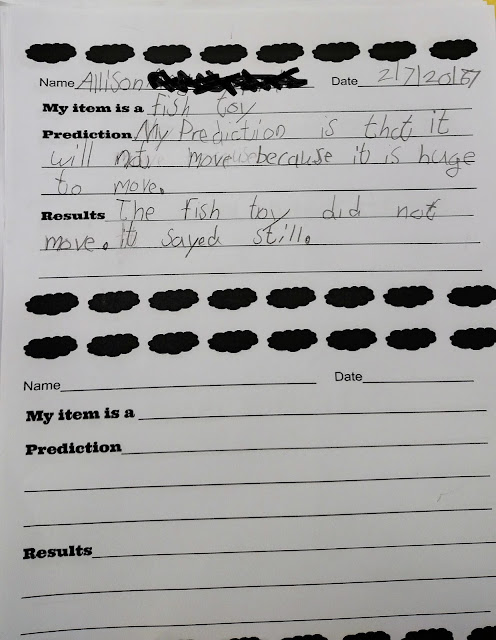 Name Allison Date 2/7/2017
My item is a fish toy
Prediction My Prediction is that it
will not move because it is huge
to move.
Results The fish toy did not
move. it sayed still.
Name Date
My item is a
Prediction
Results